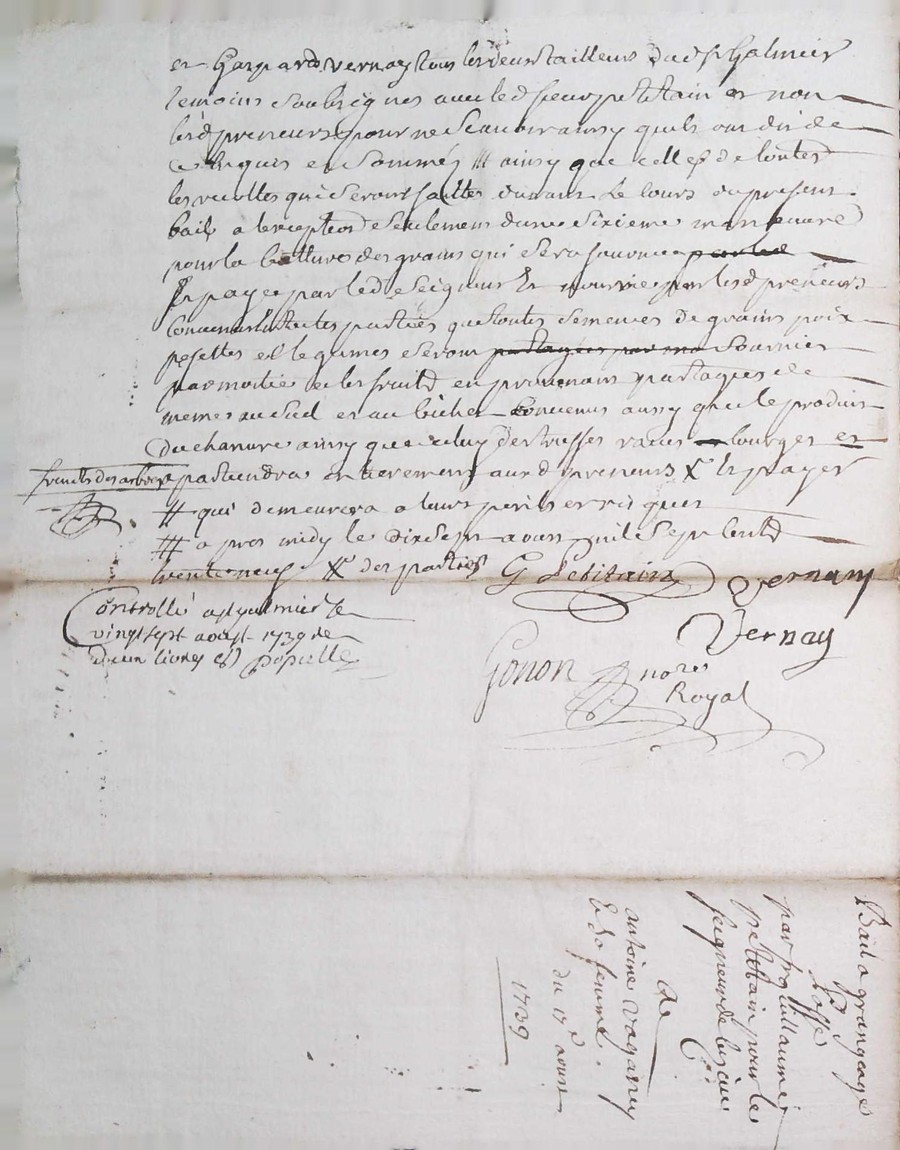 et Gaspard vernay tous les deux tailleurs dud St Galmier
temoins soubsignes avec led sieur petitain et non
lesd preneurs pour ne scavoir ainsy quils ont dit de
ce enquis et sommés ainsy que celles de toutes
les recoltes qui seront faittes durant le cours du present
bail a lexception seulement dune sixieme maneuvre
pour la batture des grains qui sera fournie par led
et payee par led Seigneur et nourrie par lesd preneurs
lesd parties que toutes semences de grains poix
pesettes et legumes seront partagées par mo fournies
par moitie et les fruits en provenans partagés de
memes au sol et au bichet convenus aussy que le produit
du chanvre ainsy que celuy des truffes raves courges et
fruits des arbres
partiendra entierement auxd preneurs X et payer
# qui demeurera a leurs perils et risques
## apres midy le dixsept aoust mil sept cents
trente neuf X des parties
G Petitain
Vernay
Vernay
Controllé a st galmier le
vingt sept aoust 1739
Gonon nore
Royal
Bail a grangeage
passé
par sr guillaume
petitain pour le
seigneur de
a
antoine vaganey
et sa femme.
du 17e aoust
1739